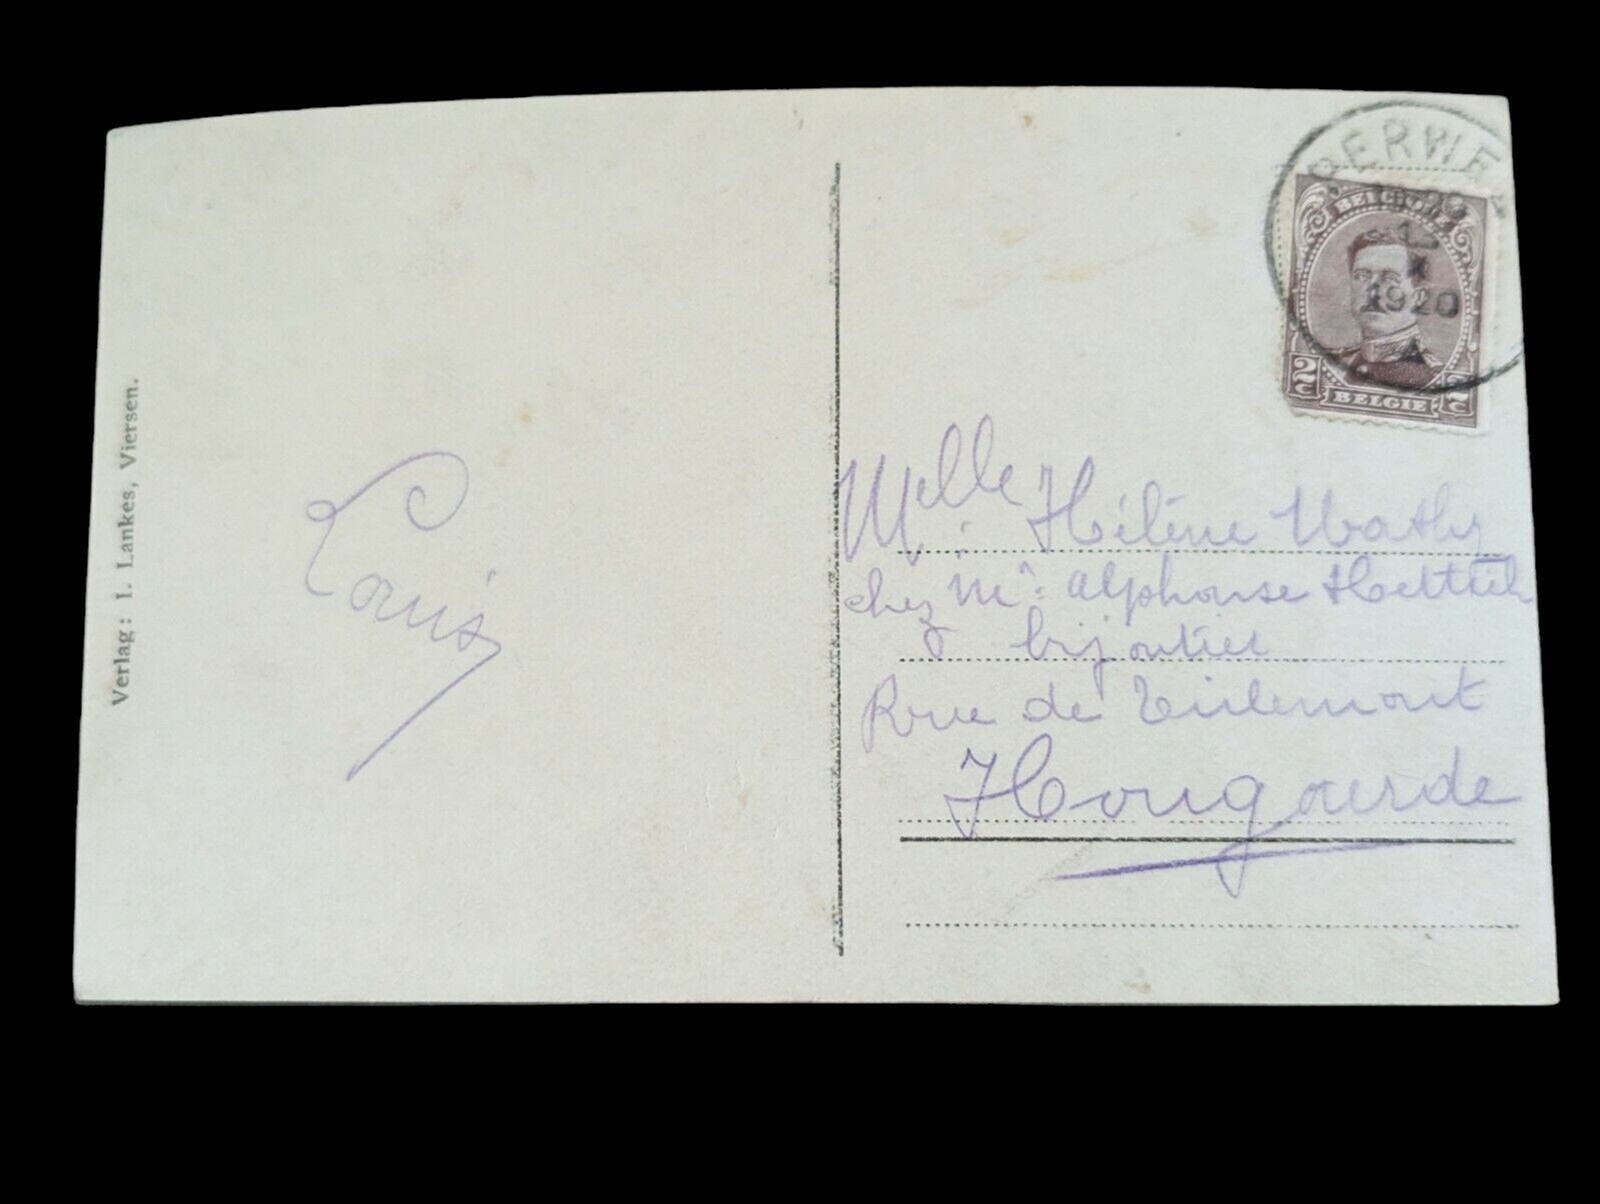 Verlag: I. Lankes, Viersen.
Louis
PERWE
1920
BELGIQUE
2c 2c
BELGIE
Melle Hélène Wathy
chez Mr. Alphonse
bijoutier
Rue de Tirlemont
Hougaerde